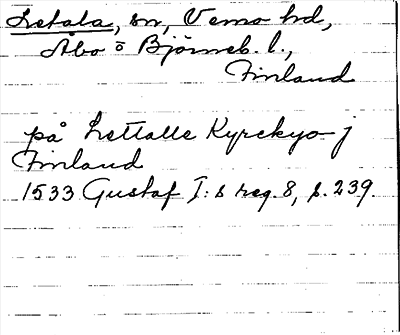 Letala, sn, Vemo hd,
Åbo o Björneb. l.,
Finland
på Lettalle Kyrckyo j
Finland
1533 Gustaf I:s reg. 8, s. 239.